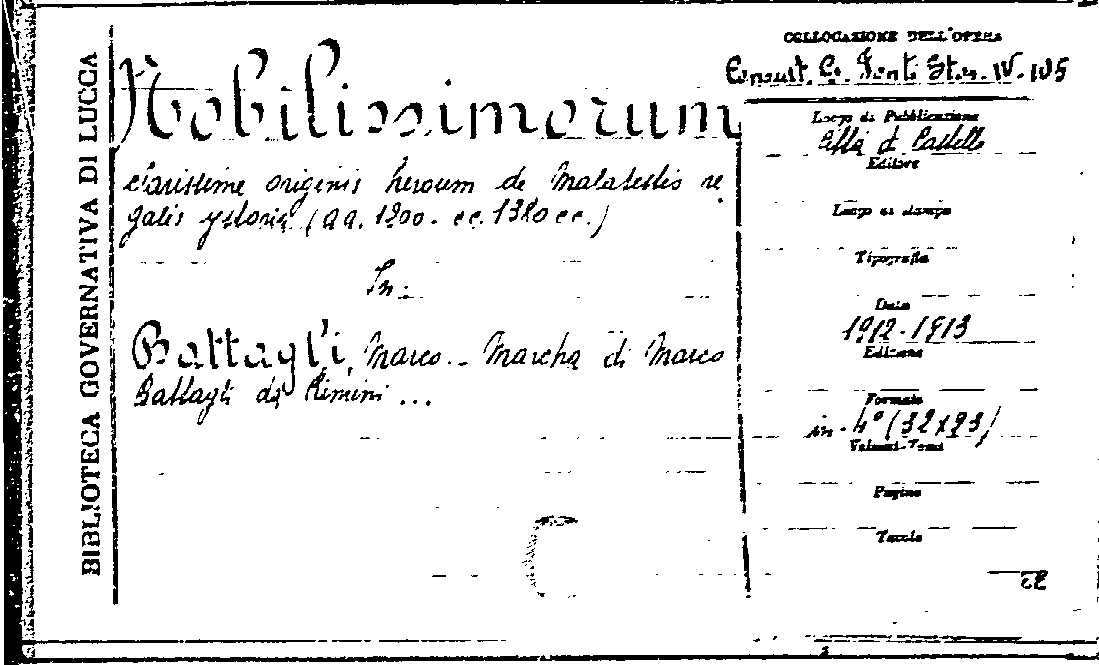 BIBLIOTECA GOVERNATIVA DI LUCCA
Nobilissimorum
clarissime originis heroum de Malatestis re
galis ystoria (aa. 1200. cc. 1380 cc.)
In:
Battagli, Marco. - Marcha di Marco
Battagli da Rimini ...
COLLOCAZIONE DELL'OPERA
Consult. C. Font. Stor. IV. 105
Luogo di Pubblicazione
Città di Castello
Editore
Luogo di stampa
Tipografia
Data
1912-1913
Edizione
Formato
in-4° (32x23)
Volumi-Tomi
Pagine
Tavole